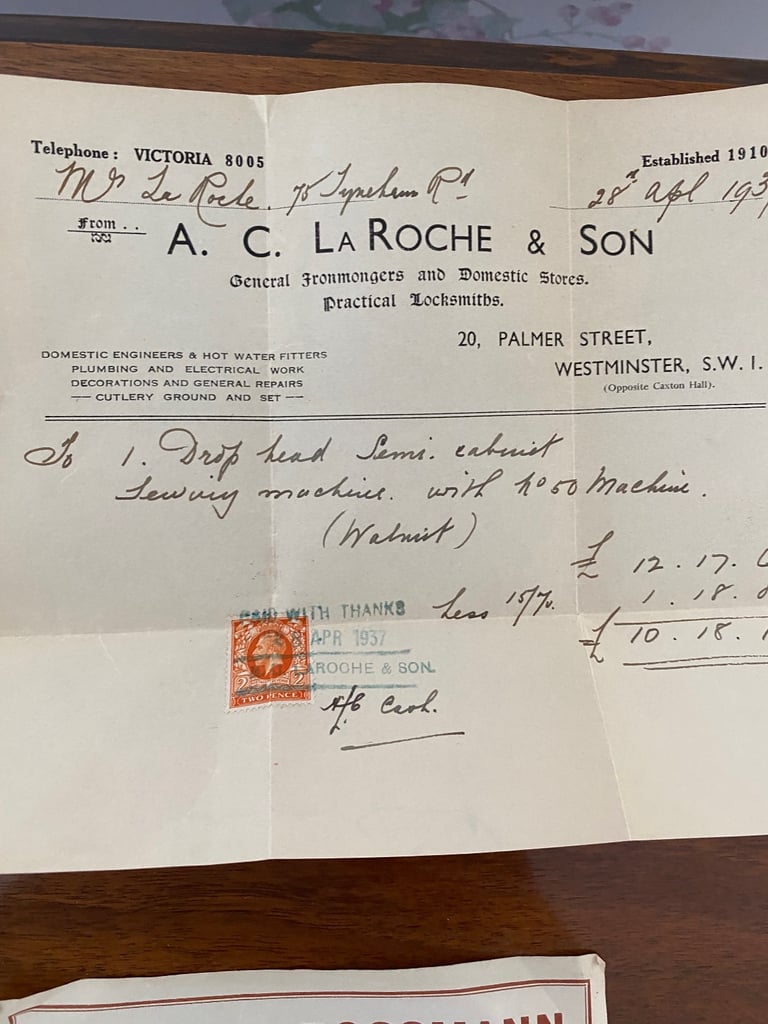 Telephone: VICTORIA 8005
Established 1910
Mrs La Roche. 75 Tyneham Rd
28th Apl 193
From . .
A. C. LA ROCHE & SON
General Ironmongers and Domestic Stores.
Practical Locksmiths.
20, PALMER STREET,
WESTMINSTER, S.W. 1.
(Opposite Caxton Hall).
DOMESTIC ENGINEERS & HOT WATER FITTERS
PLUMBING AND ELECTRICAL WORK
DECORATIONS AND GENERAL REPAIRS
CUTLERY GROUND AND SET
To 1. Drop head Semi. cabinet
Sewing machine. with No 50 Machine.
(Walnut)
£ 12 . 17 .
Less 15%. 1 . 18 .
£ 10 . 18 .
PAID WITH THANKS
APR 1937
LAROCHE & SON.
2 2
TWO PENCE
A/C Cash.